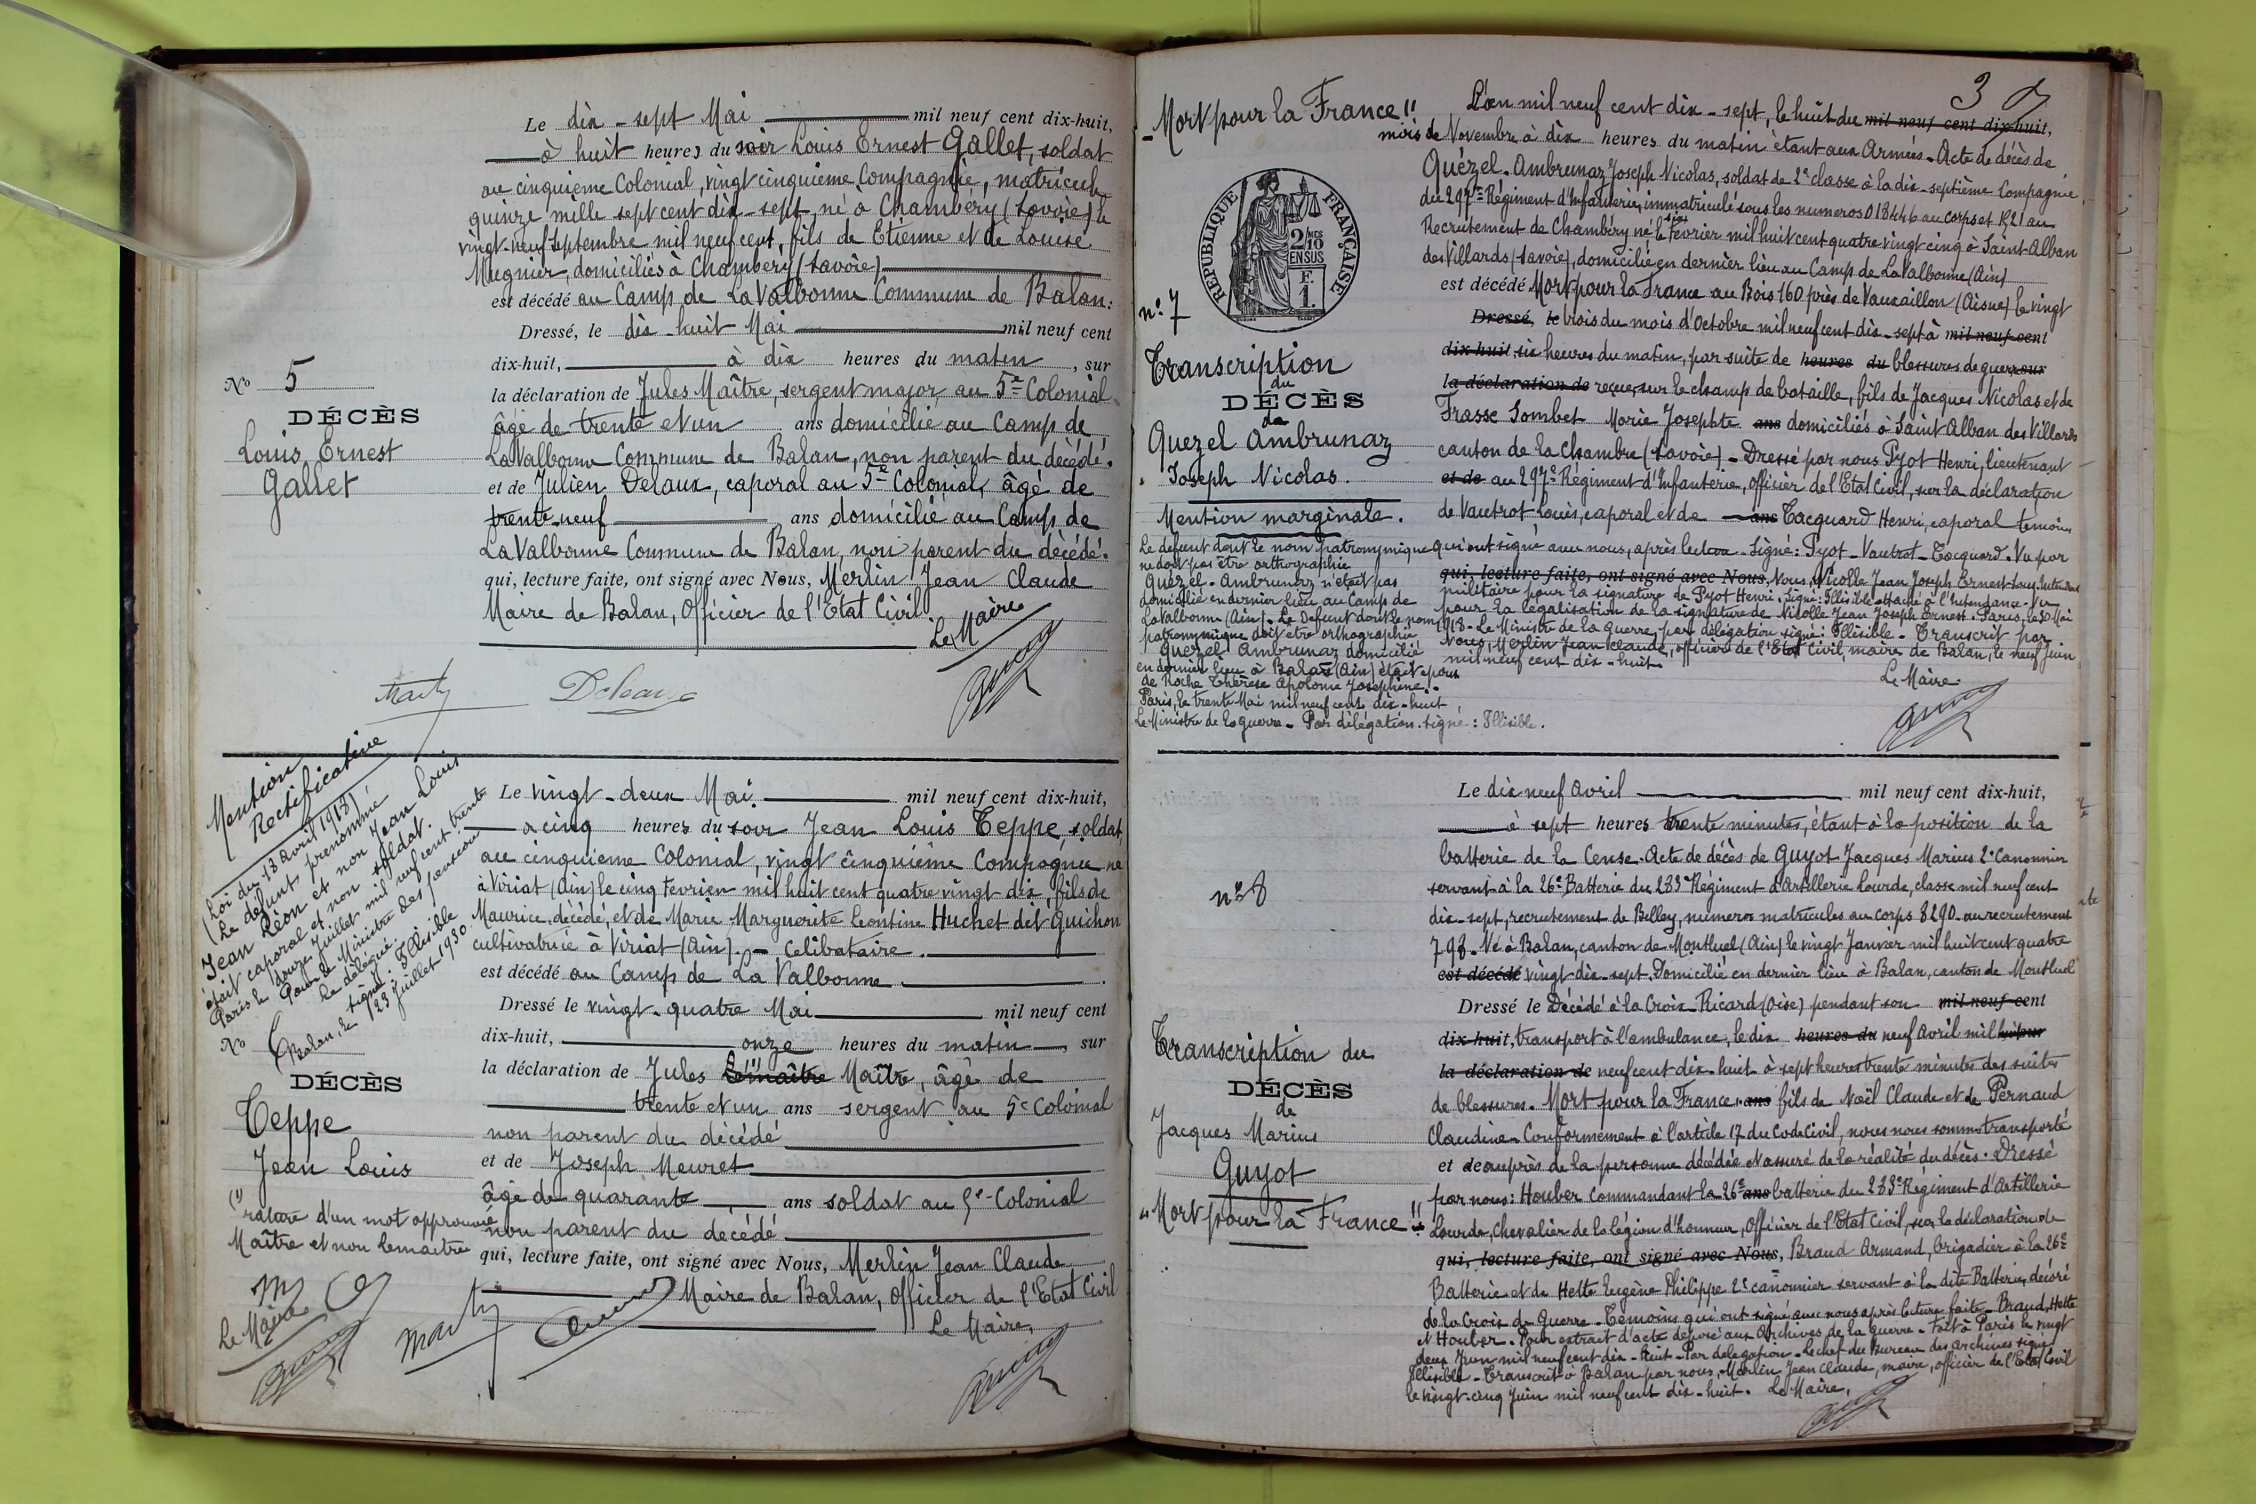 Le dix-sept Mai mil neuf cent dix-huit,
à huit heures du soir Louis Ernest Gallet, soldat
au cinquième Colonial, vingt cinquième Compagnie, matricule
quinze mille sept cent dix-sept, né à Chambéry (Savoie) le
vingt-neuf Septembre mil neuf cent, fils de Etienne et de Louise
Mugnier, domiciliés à Chambéry (Savoie)
est décédé au Camp de La Valbonne Commune de Balan:
Dressé, le dix-huit Mai mil neuf cent
dix-huit, à dix heures du matin, sur
la déclaration de Jules Maître, sergent major au 5e Colonial
âgé de trente et un ans domicilié au Camp de
La Valbonne Commune de Balan, non parent du décédé.
et de Julien Delaux, caporal au 5e Colonial, âgé de
trente-neuf ans domicilié au Camp de
La Valbonne Commune de Balan, non parent du décédé.
qui, lecture faite, ont signé avec Nous, Merlin Jean Claude
Maire de Balan, Officier de l'Etat Civil
Le Maire
No 5
DÉCÈS
Louis Ernest
Gallet
Mention
Rectificative
(Loi du 18 avril 1918)
Le défunt prénommé
Jean Léon et non Jean Louis
était caporal et non soldat.
Paris le douze Juillet mil neuf cent trente
Pour le Ministre des pensions
Le délégué.
Signé: Illisible
Balan, le 23 Juillet 1930
No 6
DÉCÈS
Teppe
Jean Louis
(1) rature d'un mot approuvée
Maître et non Lemaitre
Le Maire
Le vingt-deux Mai. mil neuf cent dix-huit,
à cinq heures du soir Jean Louis Teppe, soldat
au cinquième Colonial, vingt cinquième Compagnie né
à Viriat (Ain) le cinq Fevrier mil huit cent quatre vingt dix, fils de
Maurice, décédé, et de Marie Marguerite Leontine Huchet dit Guichon
cultivatrice à Viriat (Ain). - Celibataire.
est décédé au Camp de La Valbonne
Dressé le vingt-quatre Mai mil neuf cent
dix-huit, onze heures du matin, sur
la déclaration de Jules Lemaître (1) Maître, âgé de
trente et un ans sergent au 5e Colonial
non parent du décédé
et de Joseph Meuret
âgé de quarante ans soldat au 5e Colonial
non parent du décédé
qui, lecture faite, ont signé avec Nous, Merlin Jean Claude
Maire de Balan, Officier de l'Etat Civil
Le Maire,
3
- Mort pour la France !!
RÉPUBLIQUE FRANÇAISE
2 MES
10
EN SUS
F.
1.
n° 7
Transcription
du
DÉCÈS
de
Quezel Ambrunaz
Joseph Nicolas.
Mention marginale.
Le defunt dont le nom patronymique
ne doit pas être orthographié
Quezel-Ambrunaz n'était pas
domicilié en dernier lieu au Camp de
La Valbonne (Ain). Le Defunt dont le nom
patronymique doit être orthographié
Quezel Ambrunaz domicilié
en dernier lieu à Balan (Ain) était époux
de Roche Thérèse Apolonie Josephine.
Paris, le trente Mai mil neuf cent dix-huit
Le Ministre de la guerre - Par délégation. Signé: Illisible.
L'an mil neuf cent dix-sept, le huit du mil neuf cent dix-huit,
mois de Novembre à dix heures du matin étant aux Armées - Acte de décès de
Quézel-Ambrunaz Joseph Nicolas, soldat de 2e classe à la dix-septième Compagnie
du 297e Régiment d'Infanterie, immatriculé sous les numeros 018446 au corps et 1221 au
Recrutement de Chambéry né le six Fevrier mil huit cent quatre vingt cinq à Saint-Alban
des Villards (Savoie), domicilié en dernier lieu au Camp de La Valbonne (Ain)
est décédé Mort pour la France au Bois 160 près de Vauxaillon (Aisne) le vingt
Dressé, le trois du mois d'Octobre mil neuf cent dix-sept à mil neuf cent
dix-huit six heures du matin, par suite de heures du blessures de guerre sur
la déclaration de reçues, sur le champ de bataille, fils de Jacques Nicolas et de
Frasse Sombet Marie Josephte ans domiciliés à Saint Alban des Villards
canton de la Chambre (Savoie) - Dressé par nous Pyot Henri, lieutenant
et de au 297e Régiment d'Infanterie, Officier de l'Etat Civil, sur la déclaration
de Vautrot Louis, caporal et de ans Tacquard Henri, caporal temoins
qui ont signé avec nous, après lecture - Signé: Pyot - Vautrot - Tacquard. Vu par
qui, lecture faite, ont signé avec Nous, Nous, Nicolle Jean Joseph Ernest Sous-Intendant
militaire pour la signature de Pyot Henri. Signé: Illisible attaché à l'intendance. Vu
pour la légalisation de la signature de Nicolle Jean Joseph Ernest. Paris, le 30 Mai
1918 - Le Ministre de la Guerre, par délégation signé: Illisible - Transcrit par
Nous, Merlin Jean Claude, officier de l'Etat Civil, maire de Balan, le neuf Juin
mil neuf cent dix-huit
Le Maire
n° 8
Transcription du
DÉCÈS
de
Jacques Marius
Guyot
"Mort pour la France"!!
Le dix neuf Avril mil neuf cent dix-huit,
à sept heures trente minutes, étant à la position de la
batterie de la Cense. Acte de décès de Guyot Jacques Marius 2e Canonnier
servant à la 26e Batterie du 283e Régiment d'Artillerie Lourde, classe mil neuf cent
dix-sept, recrutement de Belley, numeros matricules au corps 8290 - au recrutement
798. Né à Balan, canton de Montluel (Ain) le vingt Janvier mil huit cent quatre
est décédé vingt dix-sept. Domicilié en dernier lieu à Balan, canton de Montluel
Dressé le Décédé à la Croix-Ricard (Oise) pendant son mil neuf cent
dix-huit, transport à l'ambulance, le dix heures du neuf Avril mil
la déclaration de neuf cent dix-huit à sept heures trente minutes des suites
de blessures. Mort pour la France. ans fils de Noël Claude et de Pernaud
Claudine - Conformement à l'article 77 du Code Civil, nous nous sommes transporté
et de auprès de la personne décédée et assuré de la réalité du décès. Dressé
par nous: Houber Commandant la 26e ans batterie du 283e Régiment d'Artillerie
Lourde, Chevalier de la Légion d'honneur, Officier de l'Etat Civil, sur la déclaration de
qui, lecture faite, ont signé avec Nous, Braud Armand, brigadier à la 26e
Batterie et de Helte Eugène Philippe 2e canonnier servant à la dite Batterie, décoré
de la Croix de Guerre - Témoins qui ont signé avec nous après lecture faite - Braud, Helte
et Houber. Pour extrait d'acte déposé aux Archives de la Guerre - Fait à Paris le vingt
deux Juin mil neuf cent dix-huit - Par delegation - Le chef du Bureau des archives signé
Illisible - Transcrit à Balan par nous, Merlin Jean Claude, maire, officier de l'Etat Civil
le vingt-cinq Juin mil neuf cent dix-huit. Le Maire,